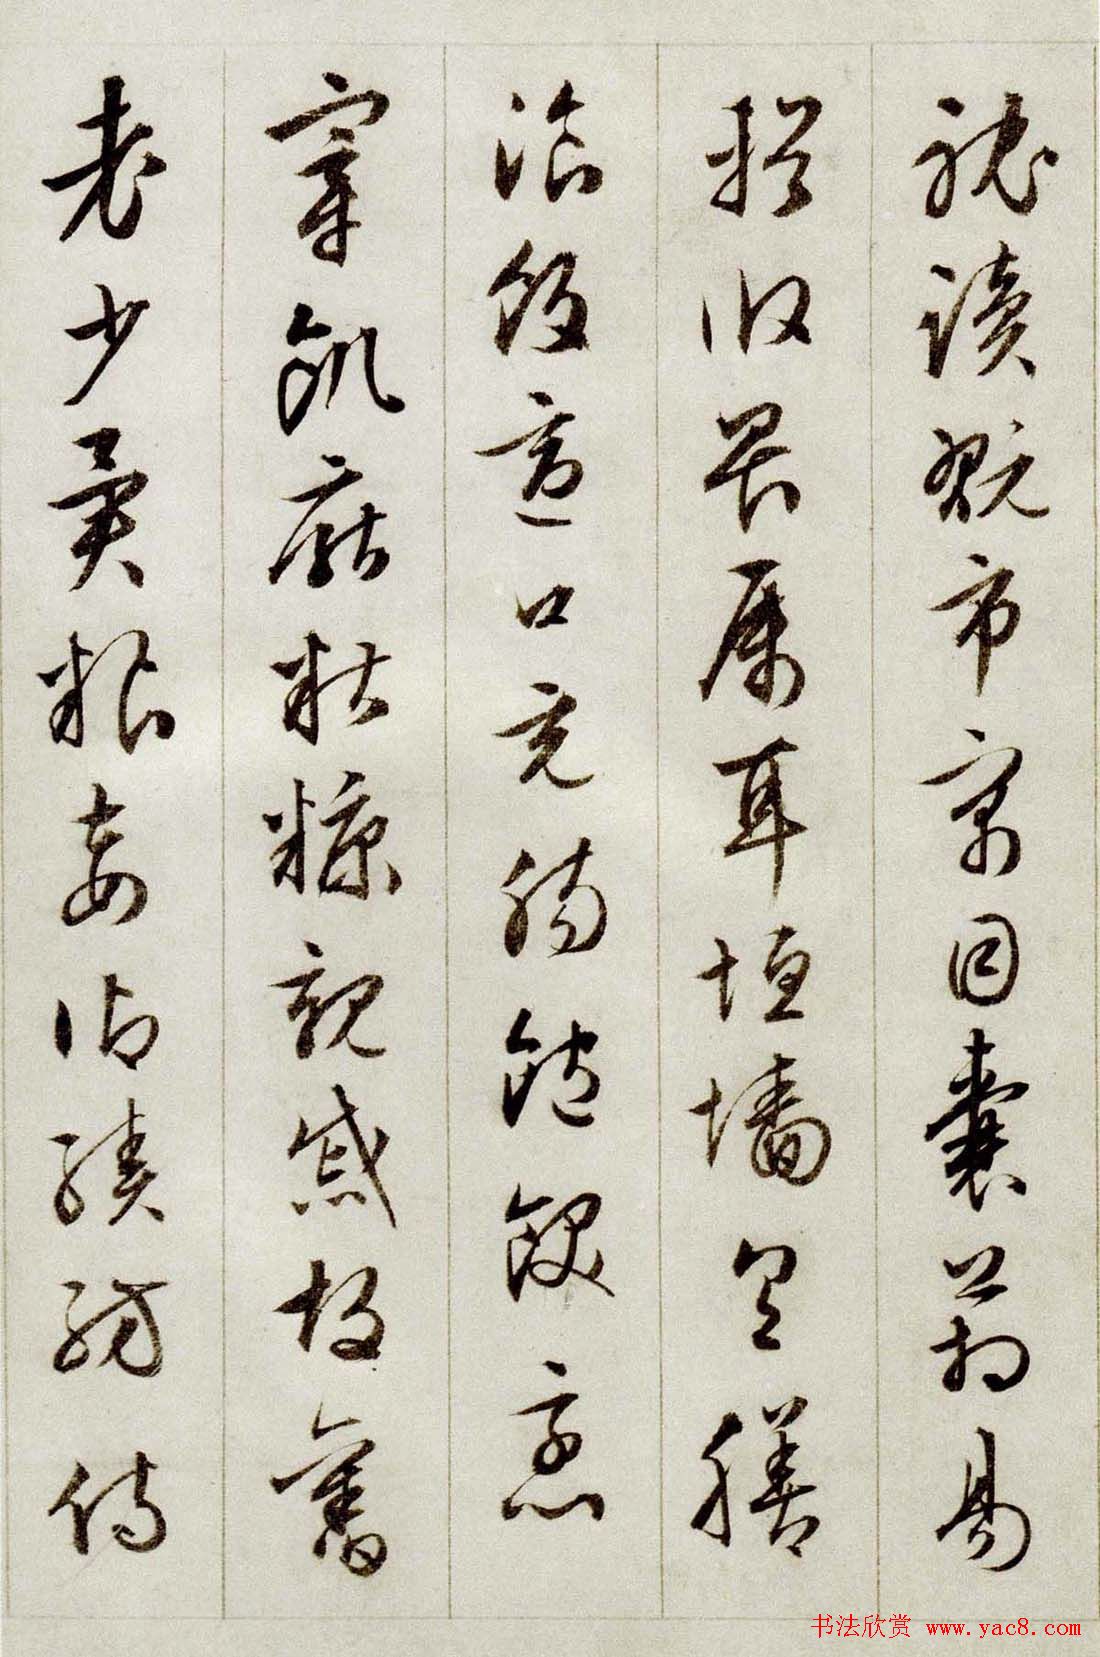 耽讀翫市寓目囊箱易
輶攸畏属耳垣墻具膳
湌飯適口充腸飽飫烹
宰飢厭糟糠親戚故舊
老少異糧妾御績紡侍
书法欣赏 www.yac8.com